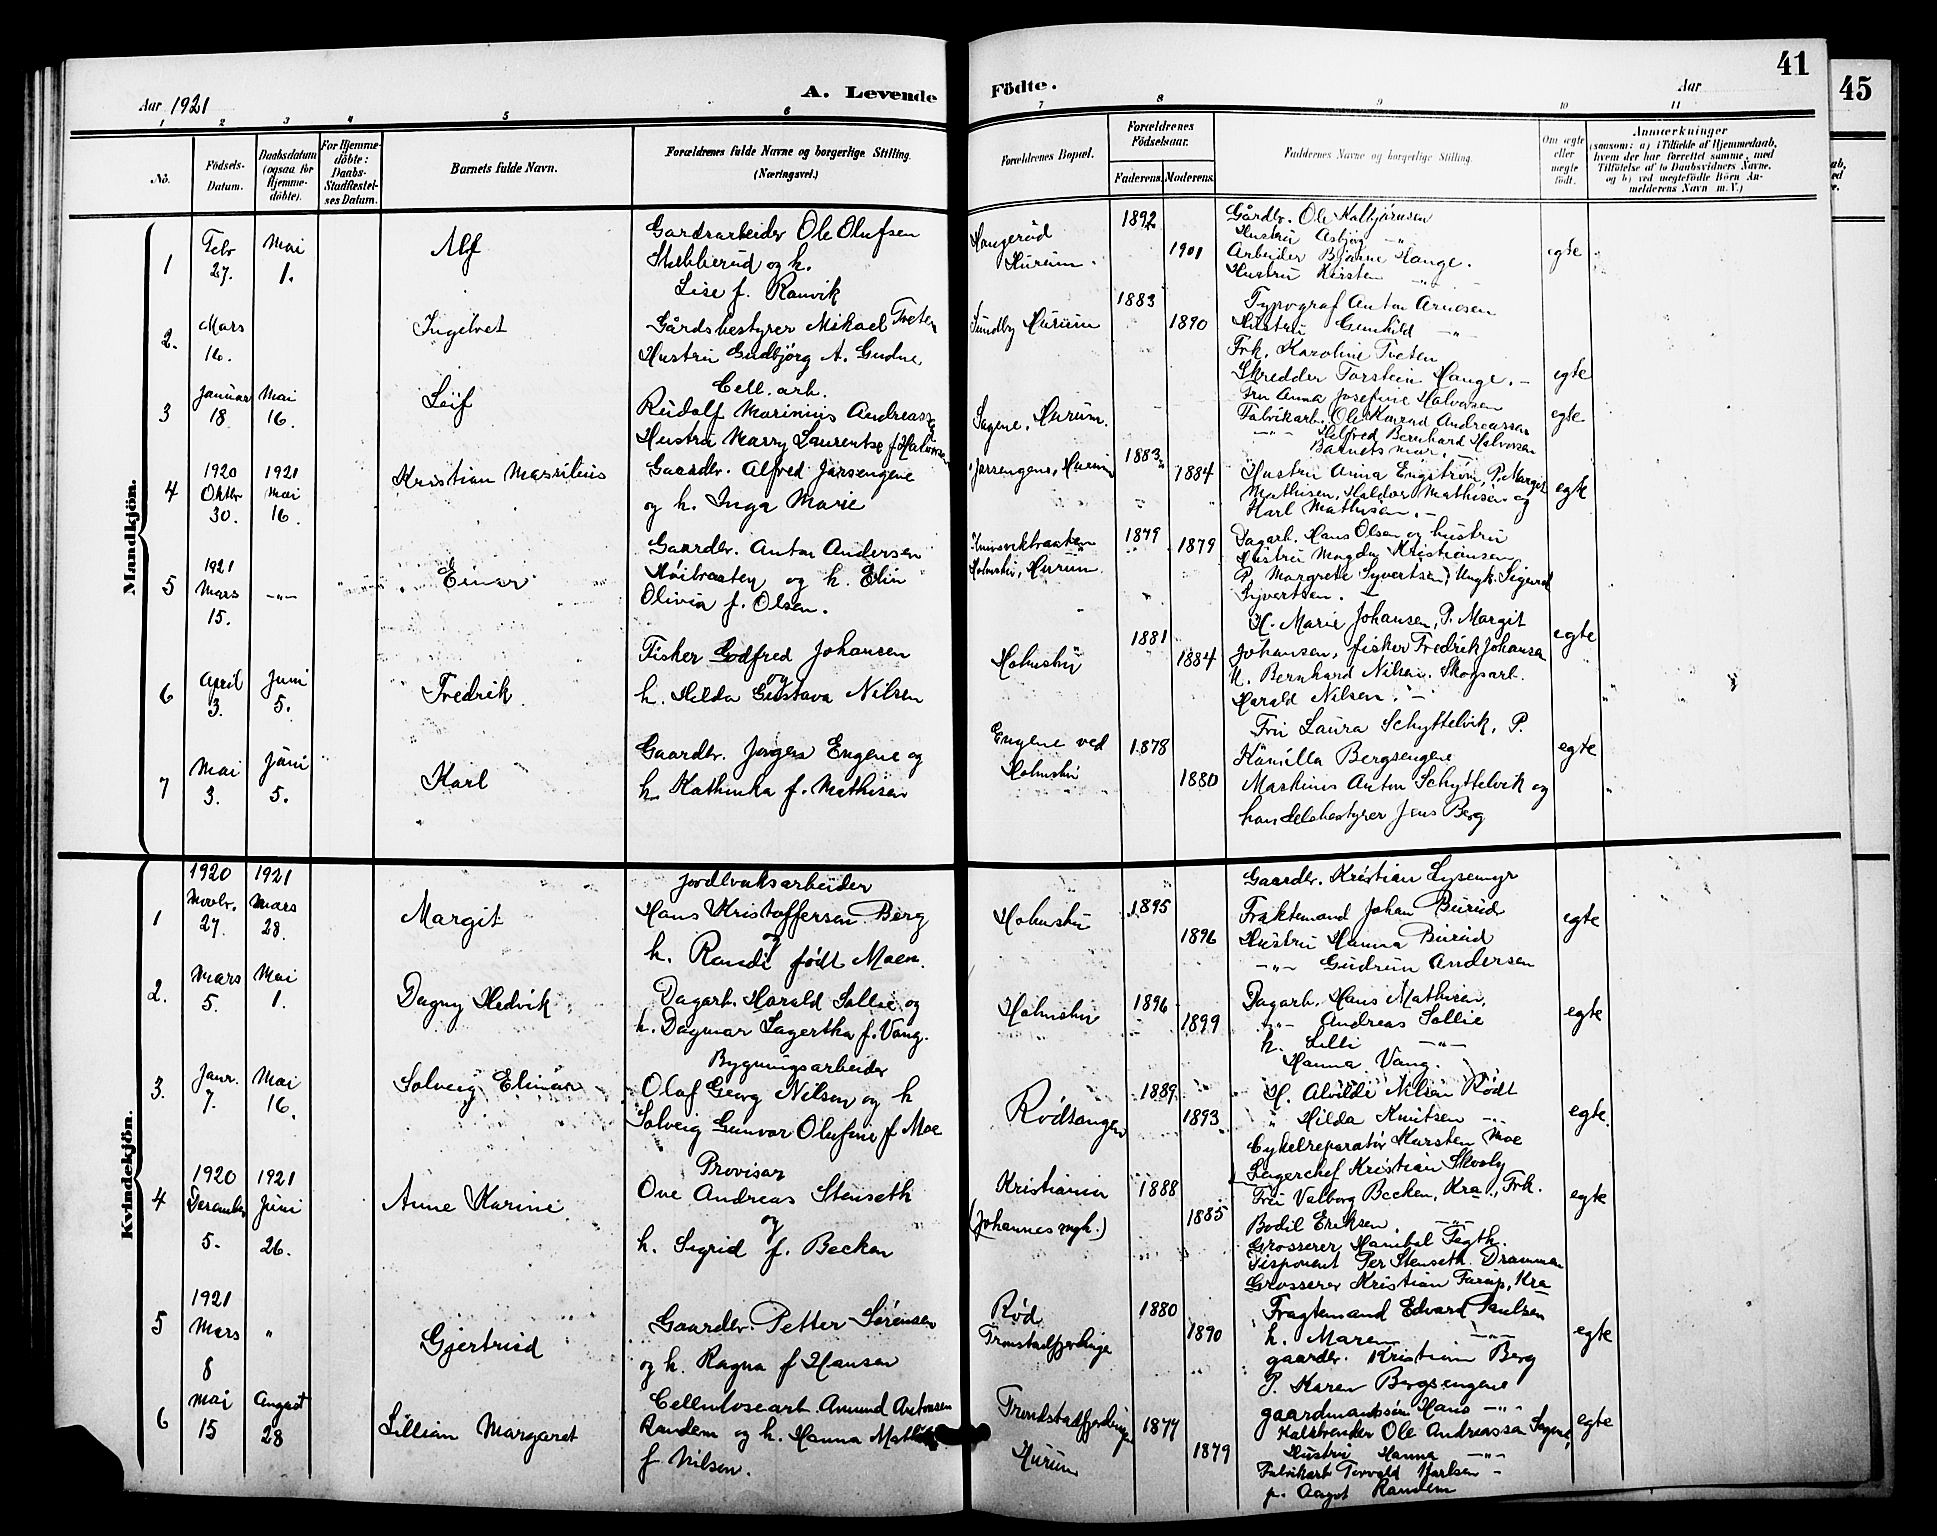 41
45
Aar 1921
A. Levende
Födte.
Aar
1 2 3 4 5 6 7 8 9 10 11
No.
Födsels-Datum.
Daabsdatum (ogsaa for Hjemmedöbte).
For Hjemmedöbte: Daabs-Stadfæstelses Datum.
Barnets fulde Navn.
Forældrenes fulde Navne og borgerlige Stilling.
(Næringsvei.)
Forældrenes Bopæl.
Forældrenes Födselsaar.
Faderens. Moderens.
Faddernes Navne og borgerlige Stilling.
Om ægte eller uægte födt.
Anmærkninger
(saasom: a) i Tilfælde af Hjemmedaab, hvem der har forrettet samme, med Tilföielse af to Daabsvidners Navne, og b) ved uægtefödte Börn Anmelderens Navn m. V.)
Mandkjön.
1
Febr 27.
Mai 1.
Alf
Gardsarbeider Ole Olufsen
Stebberud og h.
Lise f. Ranvik
Haugerud
Hurum.
1892
1901
Gårdbr. Ole Kolbjørnsen
Hustru Asbjøg -"-
Arbeider Bjarne Hauge.
Hustru Kirsten -"-
egte
2.
Mars 16.
Ingebret
Gårdsbestyrer Mikael Tveten
Hustru Gudbjörg A. Gudne
Sundby Hurum
1883
1890
Typograf Anton Arnesen
Hustru Gunhild -"-
Frk. Karoline Tveten
Skredder Torstein Hauge. -
egte
3
Januar 18
Mai 16.
Leif
Cell. arb.
Rudolf Marinius Andreassen
Hustru Marry Laurentse f. Halvorsen
Sagene, Hurum.
Fru Anna Josefine Halvorsen
Fabrikarb. Ole Konrad Andreassen
-"- Helfred Bernhard Halvorsen
Barnets mor. -
egte
4
1920 Oktbr 30.
1921 Mai 16.
Kristian Marsilius
Gaardbr. Alfred Jarsengene
og h. Inga Marie
Jarsengene, Hurum
1883
1884
Hustru Anna Engstrøm, P. Margit
Mathisen, Haldor Mathisen og
Karl Mathisen. -
egte
5
1921 Mars 15.
-"-
Einar
Gaardbr. Anton Andersen
Höibraaten og h. Elin
Olivia f. Olsen.
Holmsbu, Hurum
1879
1879
Dagarb. Hans Olsen og hustru
Hustru Magda Kristiansen
P. Margrete Syvertsen, Ungk. Sigurd
Syvertsen. -
egte
6
April 3.
Juni 5.
Fredrik
Fisker Godfred Johansen
og
h. Hilda Gustava Nilsen
Holmsbu
1881
1884
H. Marie Johansen, P. Margit
Johansen, fisker Fredrik Johansen
U. Bernhard Nilsen. Skogsarb.
Harald Nilsen. -
"
7
Mai 3.
Juni 5.
Karl
Gaardbr. Jörgen Engene og
h. Kathinka f. Mathisen
Engene ved
Holmsbu
1878
1880
Fru Laura Schyttelvik, P.
Kamilla Bergsengene
Maskinis Anton Schyttelvik og
handelsbestyrer Jens Berg
egte
"
Kvindekjön.
1
1920 Novbr. 27.
1921 Mars 28.
Margit
Jordbruksarbeider
Hans Kristoffersen Berg
og
h. Randi født Moen.
Holmsbu
1895
1896
Gaardbr. Kristian Lysemyr
Fraktemand Johan Burud
Hustru Hanna Burud
-"- Gudrun Andersen
egte
2.
Mars 5.
Mai 1.
Dagny Hedvik
Dagarb. Harald Sollie og
h. Dagmar Lagertha f. Vang.
Holmsbu
1896
1899
Dagarb. Hans Mathisen,
-"- Andreas Sollie
h. Lilli -"-
Hanna Vang.
egte
3.
Janr. 7.
Mai 16.
Solveig Elinor
Bygningsarbeider
Olaf Georg Nilsen og h
Solveig Gunvor Olufine f Moe
Rødtangen
1889
1893
H. Alvilde Nilsen Rødt
" Hilda Knutsen -"-
Cykelreparatør Karsten Moe
egte.
4
1920 Desember 5.
1921 Juni 26.
Anne Karine
Provisor
Ove Andreas Stenseth
og
h. Sigrid f. Becken
Kristiania
(Johannes mgh.)
1888
1885
Lagerchef Kristian Skooly
Fru Valborg Becken, Kra., Frk.
Bodil Eriksen, -"-
Grosserer Hanibal Fegth.
Disponent Per Stenseth. Drammen
Grosserer Kristian Farup, Kra
egte
5
1921 Mars 8
"
Gjertrud
Gaardbr. Petter Sørensen
og h. Ragna f Hansen
Rød
Tronstadfjerdinge
1880
1890
Fragtemand Edvard Paulsen
h. Maren -"-
gaardbr. Kristian Berg
P. Karen Bergsengene
gaardmandssøn Hans -"-
egte
6
Mai 15
August 28
Lillian Margaret
Celluloseart. Amund Antonsen
Randem og h. Hanna
f Nilsen.
Tronstadfjerdingen
Hurum
1877
1879
Kalkbrender Ole Andreassen Sagene,
Hustru Hanna -"-
Fabrikarb Torvald Karlsen -
p. Aagot Randem
egte